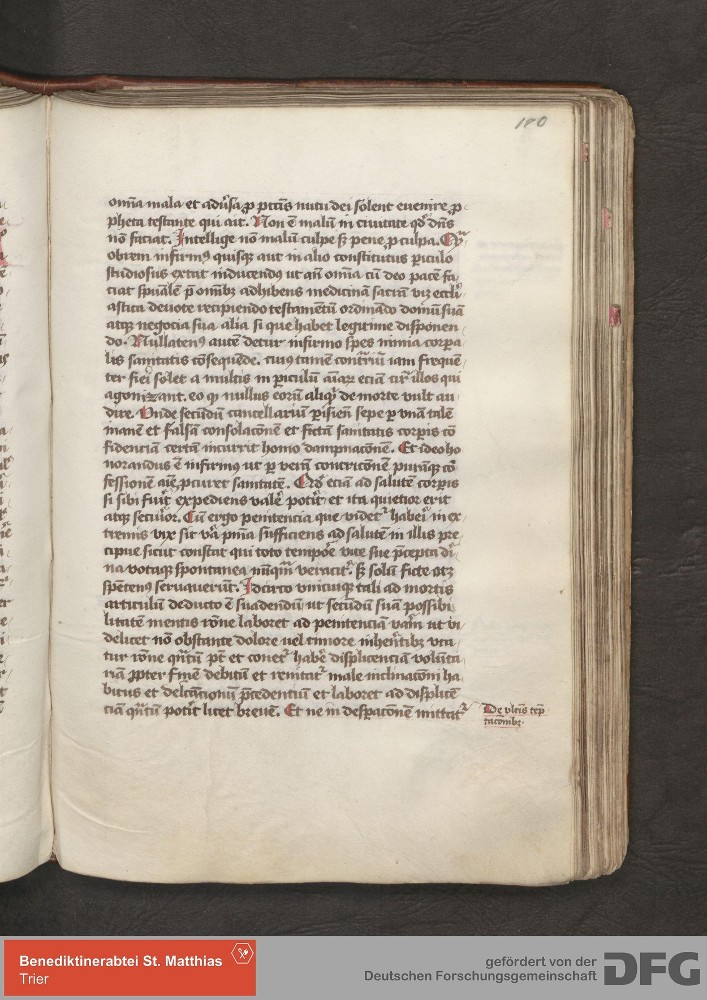 180
om̄ia mala et adūsa ꝓ pctīs nutu dei solent euenire ꝓ
pheta testante qui ait. Non ē malū in ciuitate qd̄ dn̄s
nō faciat. Intellige nō malū culpe sꝫ pene ꝓ culpa.
obrem infirmꝰ quisqꝫ aut in alio constitutus ꝑiculo
studiosus extat inducendꝰ ut an̄ om̄ia cū deo pacē fa
ciat spūalē p̄ om̄ibꝫ adhibens medicinā sacrā viꝫ eccl̄i
astica deuote recipiendo testamentū ordinādo domū suā
atqꝫ negocia sua alia si que habet legitime disponen
do. Nullatenꝰ autē detur infirmo spes nimia corꝑa
lis sanitatis cōsequēde. cuiꝰ tamē cont̄riū iam frequē
ter fieri solet a multis in ꝑiculū aīarꝫ eciam cir̄ illos qui
agonizant. eo ꝙ nullus eorū aliqd̄ de morte vult au
dire. Unde secūdū cancellariū ꝑisieñ sepe ꝑ vnā talē
inanē et falsā consolac̄onē et fictā sanitatis corꝑis cō
fidenciā certā incurrit homo dampnac̄onē. Et ideo ho
norandus ē infirmus ut ꝑ verā contric̄onē purāqꝫ cō
fessionē aīe ꝓcuret sanitatē. Qd̄ eciā ad salutē corꝑis
si sibi fuit̄ expediens valē potit̄ et ita quietior erit
atqꝫ secuior. Cū ergo penitencia que videtꝛ habei in ex
tremis vix sit vā p̄ma sufficiens ad salutē in illis pre
cipue sicut constat qui toto tempoē vite sue p̄cepta di
na votaqꝫ spontanea nūqm̄ veracitꝛ. sꝫ solū ficte atqꝫ
spētenꝰ seruauerūt. Idcirco vnicuiqꝫ tali ad mortis
articulū deducto ē suadendū ut secūdū suā possibi
litatē mentis rōne laboret ad penitenciā vam̄ ut vi
delicet nō obstante dolore uel timore inhen̄tibꝫ vta
tur rōne qn̄tū pt̄ et conetꝛ habē displicenciā volūta
riā ꝓpter finē debitū et renitatꝛ male inclinac̄oni ha
bitus et delectac̄ionū p̄cedentiū et laboret ad displicē
ciā qn̄tū potit̄ licet breuē. Et ne in desꝑac̄onē mittatꝛ
De vltīs tēp
tac̄onibꝫ.
Benediktinerabtei St. Matthias
Trier
gefördert von der
Deutschen Forschungsgemeinschaft
DFG